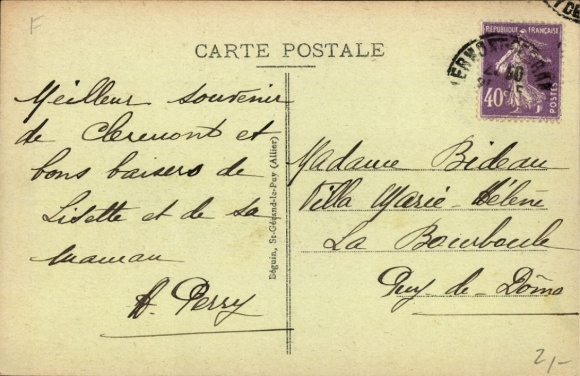 F
CARTE POSTALE
REPUBLIQUE FRANÇAISE
40c
POSTES
Meilleur souvenir
de Clermont et
bons baisers de
Lisette et de sa
maman
A. Perry
Béguin, St-Gérand-le-Puy (Allier)
Madame Bideau
Villa Marie-Hélène
La Bourboule
Puy-de-Dôme
2,-